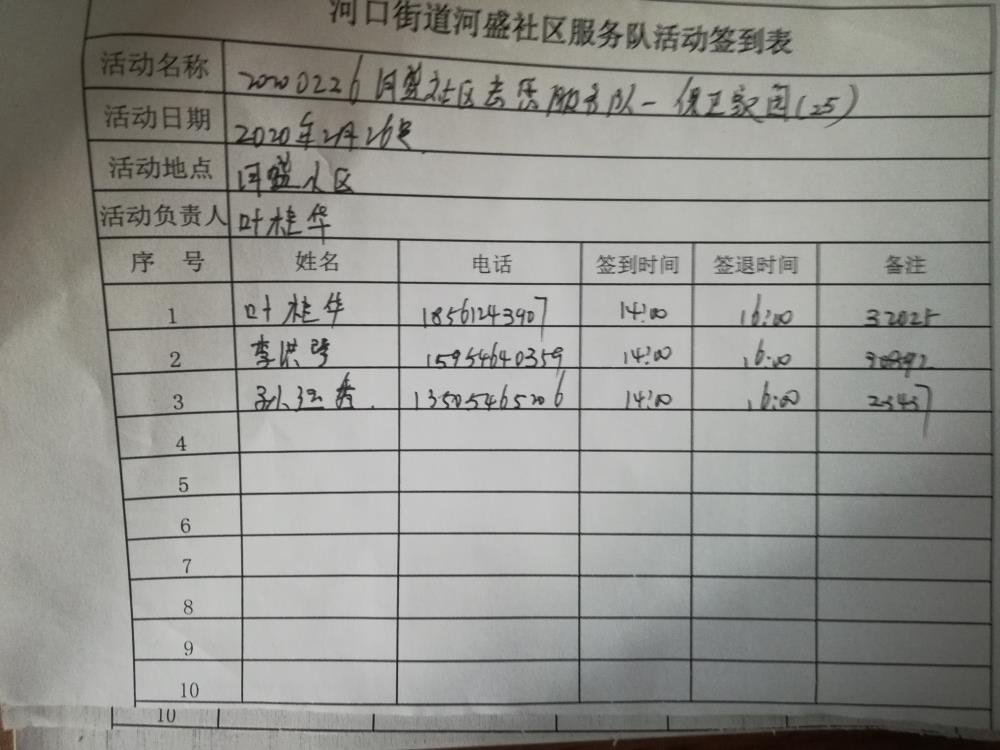 河口街道河盛社区服务队活动签到表
活动名称 20200226河盛社区志愿服务队一保卫家园(25)
活动日期 2020年2月26号
活动地点 河盛小区
活动负责人 叶桂华
序号 姓名 电话 签到时间 签退时间 备注
1 叶桂华 18561243907 14:00 16:00 32025
2 李洪 15954640359 14:00 16:00
3 孙 13505465206 14:00 16:00 23437
4
5
6
7
8
9
10
10